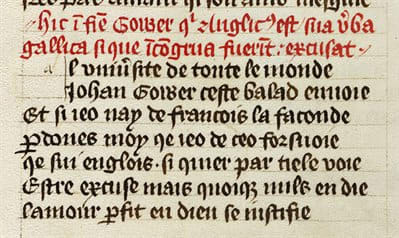 hic in fine Gower qui Anglicus est sua verba
gallica si que incongrua fuerint excusat
l universite de toute le monde
Johan Gower ceste balad enuoie
Et si ieo nay de francois la faconde
pdones moy qe ieo de ceo forsuoie
qe sui englois · si quier par tiele voie
Estre excuse mais quoiqz nuls en die
lamour pfit en dieu se iustifie